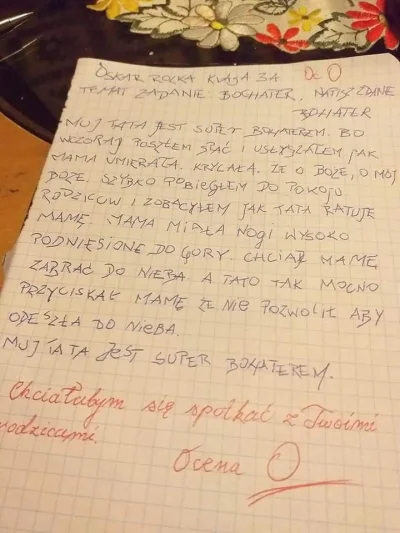 OSKAR ROCKA KLASA 3A Oc O
TEMAT ZADANIE BOCHATER. NATISZ ZDANE
BOHATER
MUJ TATA JEST SUPER BOHATEREM. BO
WCZORAJ POSZŁEM SPAĆ I USŁYSZAŁEM JAK
MAMA UMIERAŁA. KRYCAŁA. ŻE O BOŻE, O MÓJ
BOŻE. SZYBKO POBIEGŁEM DO POKOJU
RODZICÓW I ZOBACYŁEM JAK TATA RATUJE
MAMĘ. MAMA MIAŁA NOGI WYSOKO
PODNIESIONE DO GÓRY. CHCIAŁ MAMĘ
ZABRAĆ DO NIEBA. A TATO TAK MOCNO
PRZYCISKAŁ MAMĘ ŻE NIE POZWOLIŁ ABY
ODESZŁA DO NIEBA.
MUJ TATA JEST SUPER BOHATEREM.
Chciałabym się spotkać z Twoimi
rodzicami.
Ocena O